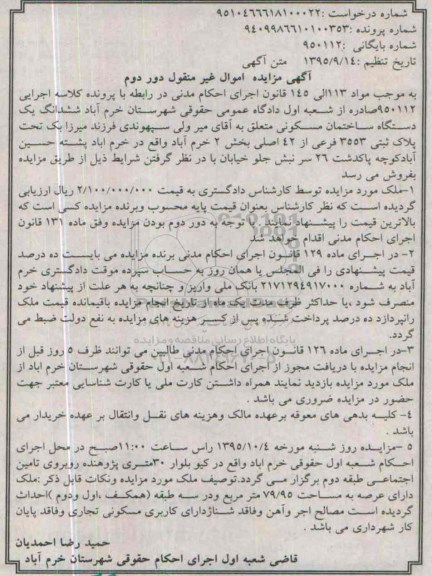 شماره درخواست :۹۵۱۰۴۶۶۶۱۸۱۰۰۰۲۲
شماره پرونده :۹۴۰۹۹۸۶۶۱۰۱۰۰۳۵۳
شماره بایگانی :۹۵۰۱۱۲
تاریخ تنظیم :۱۳۹۵/۹/۱۴ متن آگهی
آگهی مزایده اموال غیر منقول دور دوم
به موجب مواد ۱۱۳الی ۱۴۵ قانون اجرای احکام مدنی در رابطه با پرونده کلاسه اجرایی
۹۵۰۱۱۲صادره از شعبه اول دادگاه عمومی حقوقی شهرستان خرم آباد ششدانگ یک
دستگاه ساختمان مسکونی متعلق به آقای میر ولی سپهوندی فرزند میرزا بک تحت
پلاک ثبتی ۳۵۵۳ فرعی از ۴۲ اصلی بخش ۲ خرم آباد واقع در خرم اباد پشته حسین
آبادکوچه پاکدشت ۲۶ سر نبش جلو خیابان با در نظر گرفتن شرایط ذیل از طریق مزایده
بفروش می رسد
۱-ملک مورد مزایده توسط کارشناس دادگستری به قیمت ۲/۱۰۰/۰۰۰/۰۰۰ ریال ارزیابی
گردیده است که نظر کارشناس بعنوان قیمت پایه محسوب وبرنده مزایده کسی است که
بالاترین قیمت را پیشنهاد نماید . با توجه به دور دوم بودن مزایده وفق ماده ۱۳۱ قانون
اجرای احکام مدنی اقدام خواهد شد
۲- در اجرای ماده ۱۲۹ قانون اجرای احکام مدنی برنده مزایده می بایست ده درصد
قیمت پیشنهادی را فی المجلس یا همان روز به حساب سپرده موقت دادگستری خرم
آباد به شماره ۲۱۷۱۲۹۴۹۱۷۰۰۰ بانک ملی واریز و چنانچه به هر علت از پیشنهاد خود
منصرف شود ،یا حداکثر ظرف مدت یک ماه از تاریخ انجام مزایده باقیمانده قیمت ملک
رانپردازد ده درصد پرداخت شده پس از کسر هزینه های مزایده به نفع دولت ضبط می
گردد.
۳-در اجرای ماده ۱۲۶ قانون اجرای احکام مدنی طالبین می توانند ظرف ۵ روز قبل از
انجام مزایده با دریافت مجوز از اجرای احکام شعبه اول حقوقی شهرستان خرم اباد از
ملک مورد مزایده بازدید نمایند همراه داشتن کارت ملی یا کارت شناسایی معتبر جهت
حضور در مزایده ضروری می باشد .
۴- کلیه بدهی های معوقه برعهده مالک وهزینه های نقل وانتقال بر عهده خریدار می
باشد .
۵ -مزایده روز شنبه مورخه ۱۳۹۵/۱۰/۴ راس ساعت ۱۱:۰۰صبح در محل اجرای
احکام شعبه اول حقوقی خرم اباد واقع در کیو بلوار ۳۰متری پژوهنده روبروی تامین
اجتماعی طبقه دوم برگزار می گردد.توصیف ملک مورد مزایده ونکات قابل ذکر :ملک
دارای عرصه به مساحت ۷۹/۹۵ متر مربع ودر سه طبقه (همکف ،اول ودوم )احداث
گردیده است مصالح اجر وآهن وفاقد شناژدارای کاربری مسکونی تجاری وفاقد پایان
کار شهرداری می باشد .
حمید رضا احمدیان
قاضی شعبه اول اجرای احکام حقوقی شهرستان خرم آباد